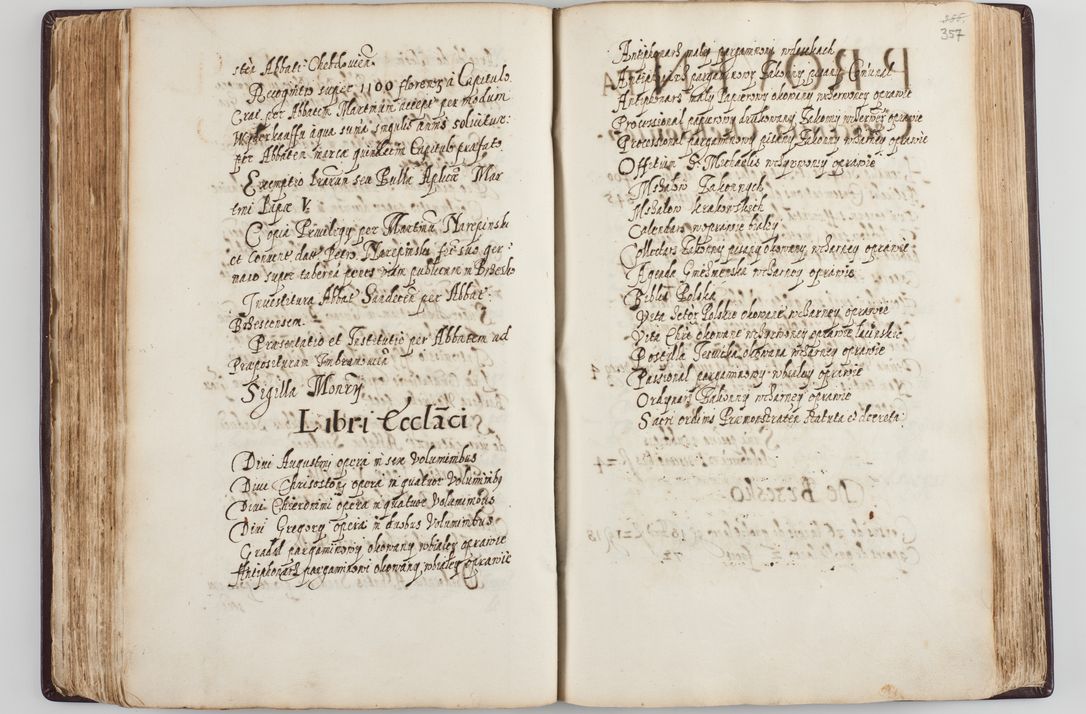 ster Abbati Chebdovien.
Recognitio super 1100 florens à Capitulo
Crac. per Abbatem Martinum accept. per modum
Wyderkauffu à qua suma singulis annis solvitur
per Abbatem marcæ quindecim Capitulo præfato
Exemptio brarum seu Bulla Aplica Mar
tini Papæ V.
Copia Privilegy per Martinu Narepinski
et Convent. dat. Petro Narepinski fri suo ger
mano super taberna penes viam publicam in Brzesko
Investitura Abbat. Sandecen per Abbat.
Brzescensem.
Præsentatio et Institutio per Abbatem ad
Præposituram Imbramovicen
Sigilla Monrÿ
Libri Ecclãci
Divi Augustini opera in sex voluminibus
Divi Chrisostomi opera in quatuor voluminibus
Divi Chieronimi opera in quatuor voluminibus
Divi Gregory opera in duobus voluminibus
Gradał pargaminowy okowany w białey oprawie
Antiphonarz pargaminowi okowany w białey oprawie
357
Antiphonarz mały pargaminowy w deskach
Antiphonarz pargaminowy Zakonny pisany
Antiphonarz mały Papierowy okowany w czerwoney oprawie
Processional papierowy drukowany Zakonny w czerwoney oprawie
Processional pargaminowy pisany Zakonny w czarney oprawie
Officium S. Michaelis w czerwoney oprawie
Mszałow Zakonnych
Mszałow krakowskich
Calendarz w oprawie białey
Collectarz Zakonny pisany okowany w czarney oprawie
Agenda Gnieznienska w czarney oprawie
Biblia Polska
Vita Polskie okowane w czarney oprawie
Vita Chri okowane w czerwoney oprawie łacinskie
Postylla Jesuicka okowana w czarney oprawie
Passional pargaminowy w białey oprawie
Ordynarz Zakonny w czarney oprawie
Sacri ordinis Præmonstraten Statuta et decreta